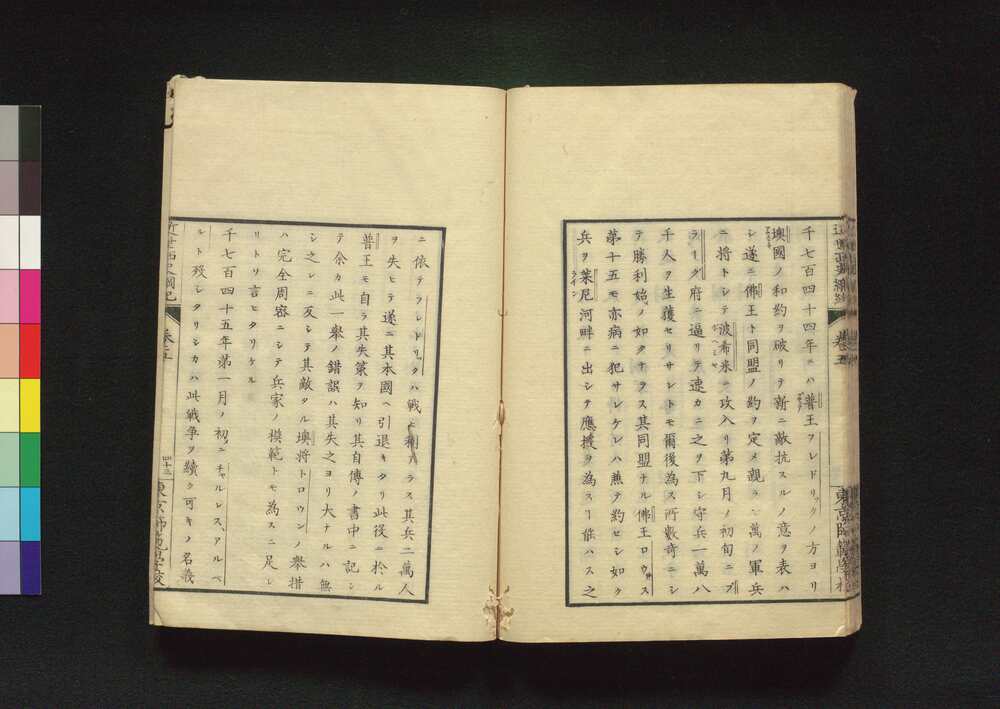 千七百四十四年ニハ普王フレドリックノ方ヨリ
墺國ノ和約ヲ破リテ新ニ敵抗スルノ意ヲ表ハ
シ遂ニ佛王ト同盟ノ約ヲ定メ親ラ八萬ノ軍兵
ニ將トシテ波希米ニ攻入リ第九月ノ初旬ニプ
ラーク府ニ逼リテ速カニ之ヲ下シ守兵一萬八
千人ヲ生獲セリサレトモ爾後為ス所數奇ニシ
テ勝利始ノ如クナラス其同盟ナル佛王ロウス
第十五モ亦病ニ犯サレケレハ兼テ約セシ如ク
兵ヲ萊尼河畔ニ出シテ應援ヲ為ス能ハス之
ニ依テフレドリックハ戰ヒ利アラス其兵二萬人
ヲ失ヒテ遂ニ其本國ヘ引退キタリ此役ニ於ル
普王モ自ラ其失策ヲ知リ其自傳ノ書中ニ記シ
テ余カ此一擧ノ錯誤ハ其失之ヨリ大ナルハ無
シ之レニ反シテ其敵タル墺將トロウンノ擧措
ハ完全周容ニシテ兵家ノ模範トモ為スニ足レ
リトリ言ヒタリケル
千七百四十五年第一月ノ初メチャルレス、アルベ
ルト歿シタリシカハ此戰爭ヲ續ク可キノ名義
近世西史綱紀
卷五
四十三
東京師範學校